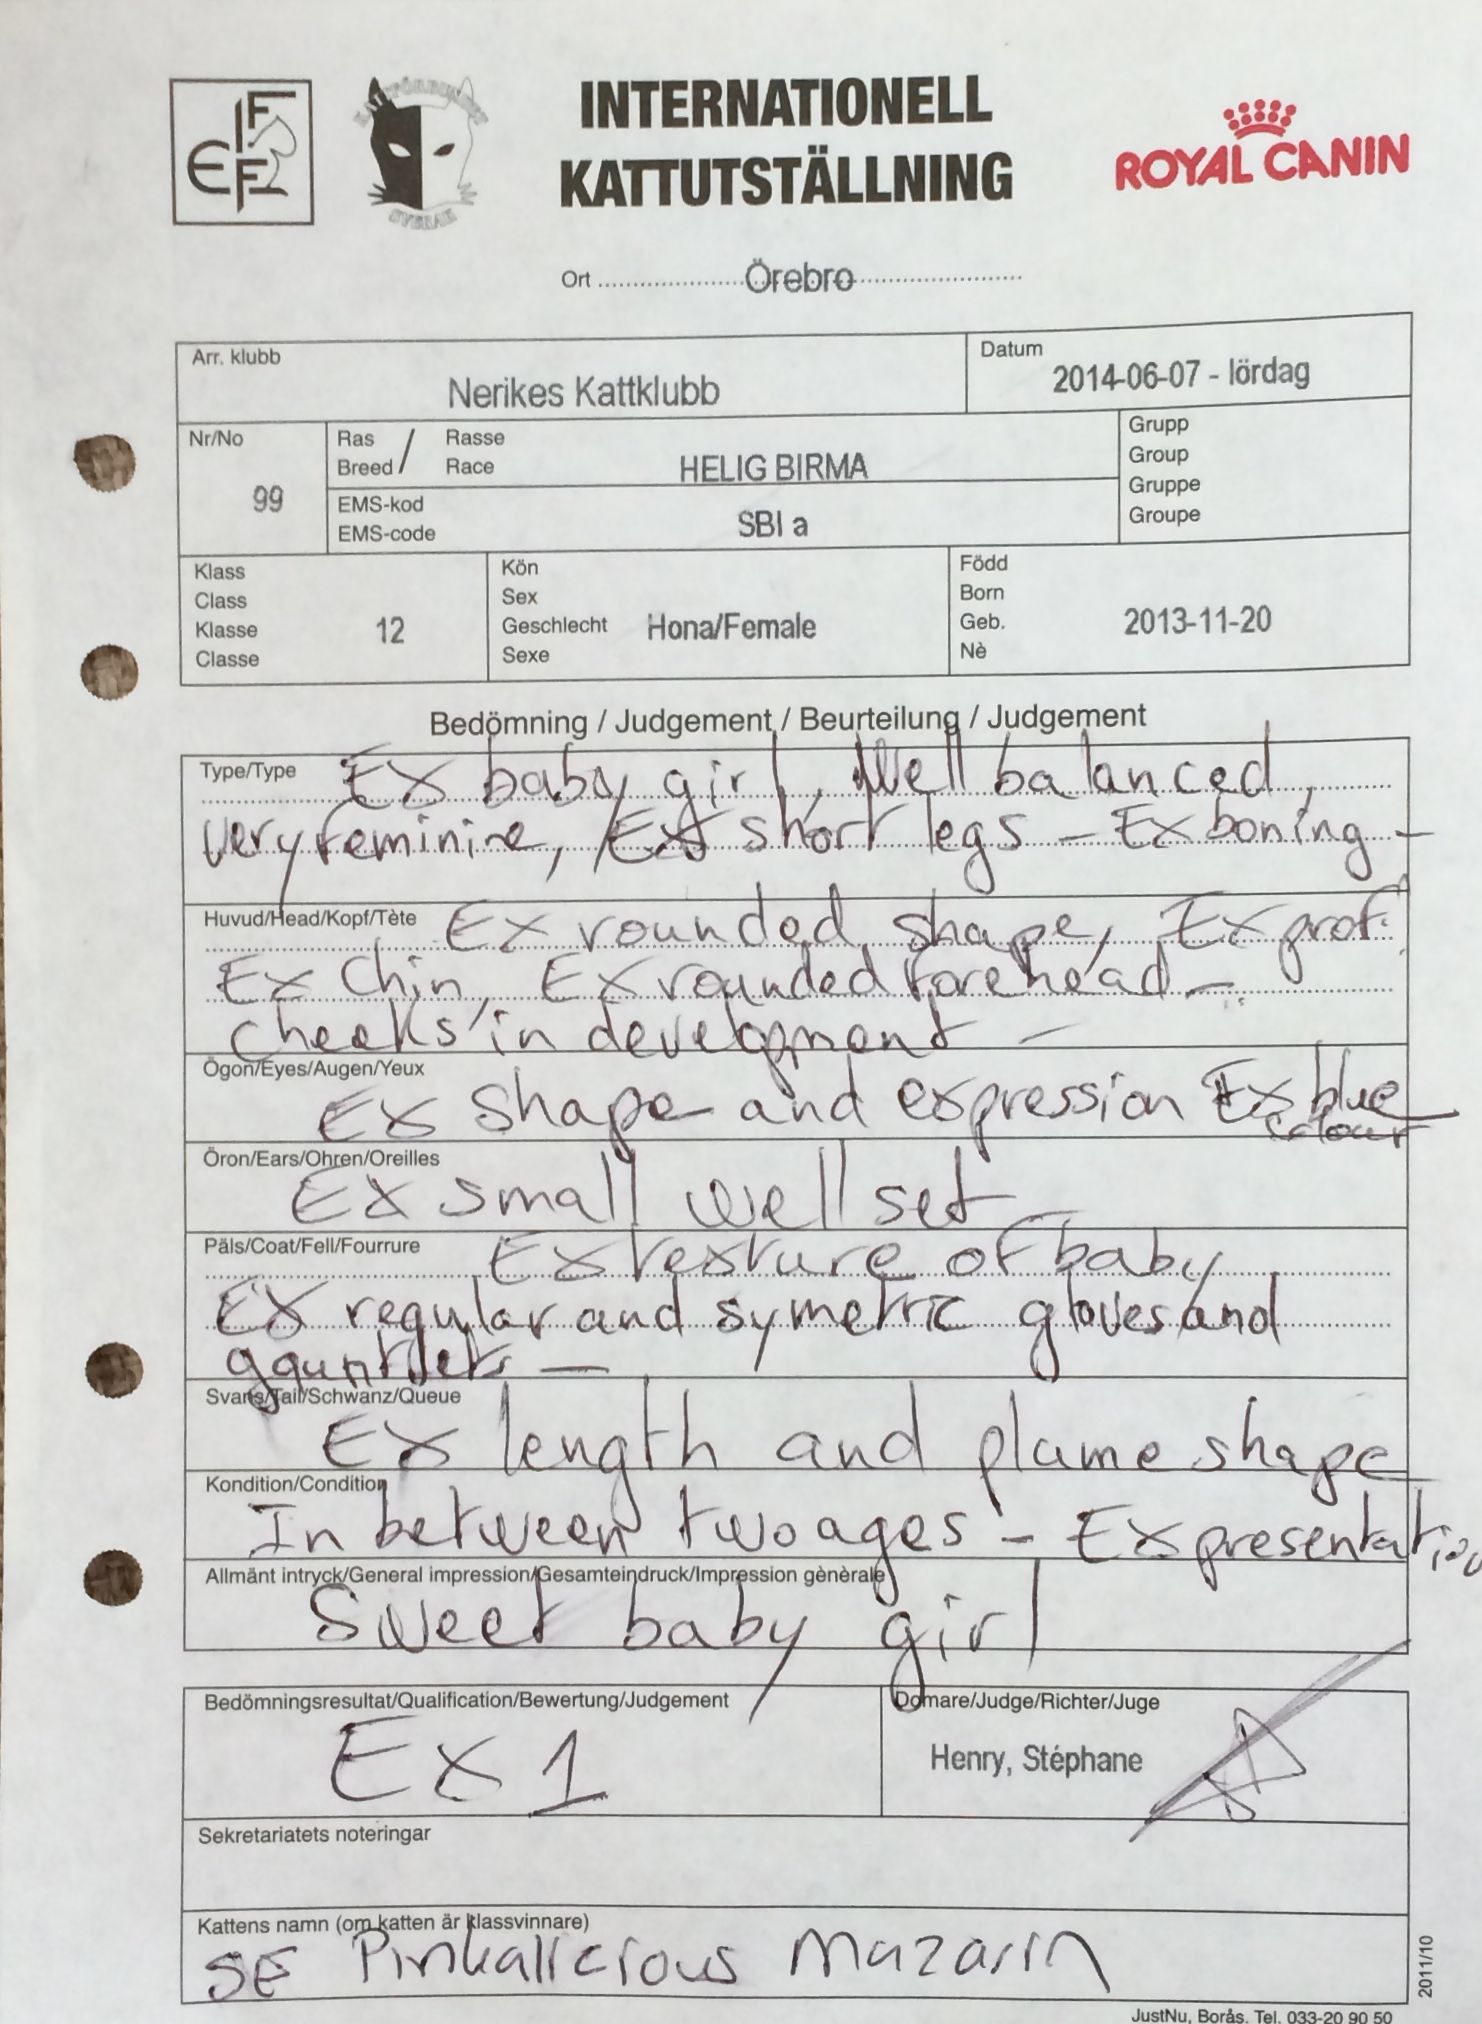 FIFe
KATTFÖRBUND
SVERAK
INTERNATIONELL
KATTUTSTÄLLNING
ROYAL CANIN
Ort Örebro
Arr. klubb
Nerikes Kattklubb
Datum
2014-06-07 - lördag
Nr/No
99
Ras / Rasse
Breed / Race
HELIG BIRMA
EMS-kod
EMS-code
SBI a
Grupp
Group
Gruppe
Groupe
Klass
Class
Klasse
Classe
12
Kön
Sex
Geschlecht
Sexe
Hona/Female
Född
Born
Geb.
Nè
2013-11-20
Bedömning / Judgement / Beurteilung / Judgement
Type/Type Ex baby girl, Well balanced,
very feminine, Ex short legs - Ex boning -
Huvud/Head/Kopf/Tète Ex rounded shape, Ex prof.
Ex chin, Ex rounded forehead -
cheeks in development -
Ögon/Eyes/Augen/Yeux
Ex shape and expression Ex blue
colour
Öron/Ears/Ohren/Oreilles
Ex small well set
Päls/Coat/Fell/Fourrure Ex texture of baby
Ex regular and symetric gloves and
gauntlets -
Svans/Tail/Schwanz/Queue
Ex length and plume shape
Kondition/Condition
In between two ages - Ex presentation
Allmänt intryck/General impression/Gesamteindruck/Impression gènèrale
Sweet baby girl
Bedömningsresultat/Qualification/Bewertung/Judgement
Ex 1
Domare/Judge/Richter/Juge
Henry, Stéphane
Sekretariatets noteringar
Kattens namn (om katten är klassvinnare)
SE Pinkalicious Mazarin
2011/10
JustNu, Borås. Tel. 033-20 90 50